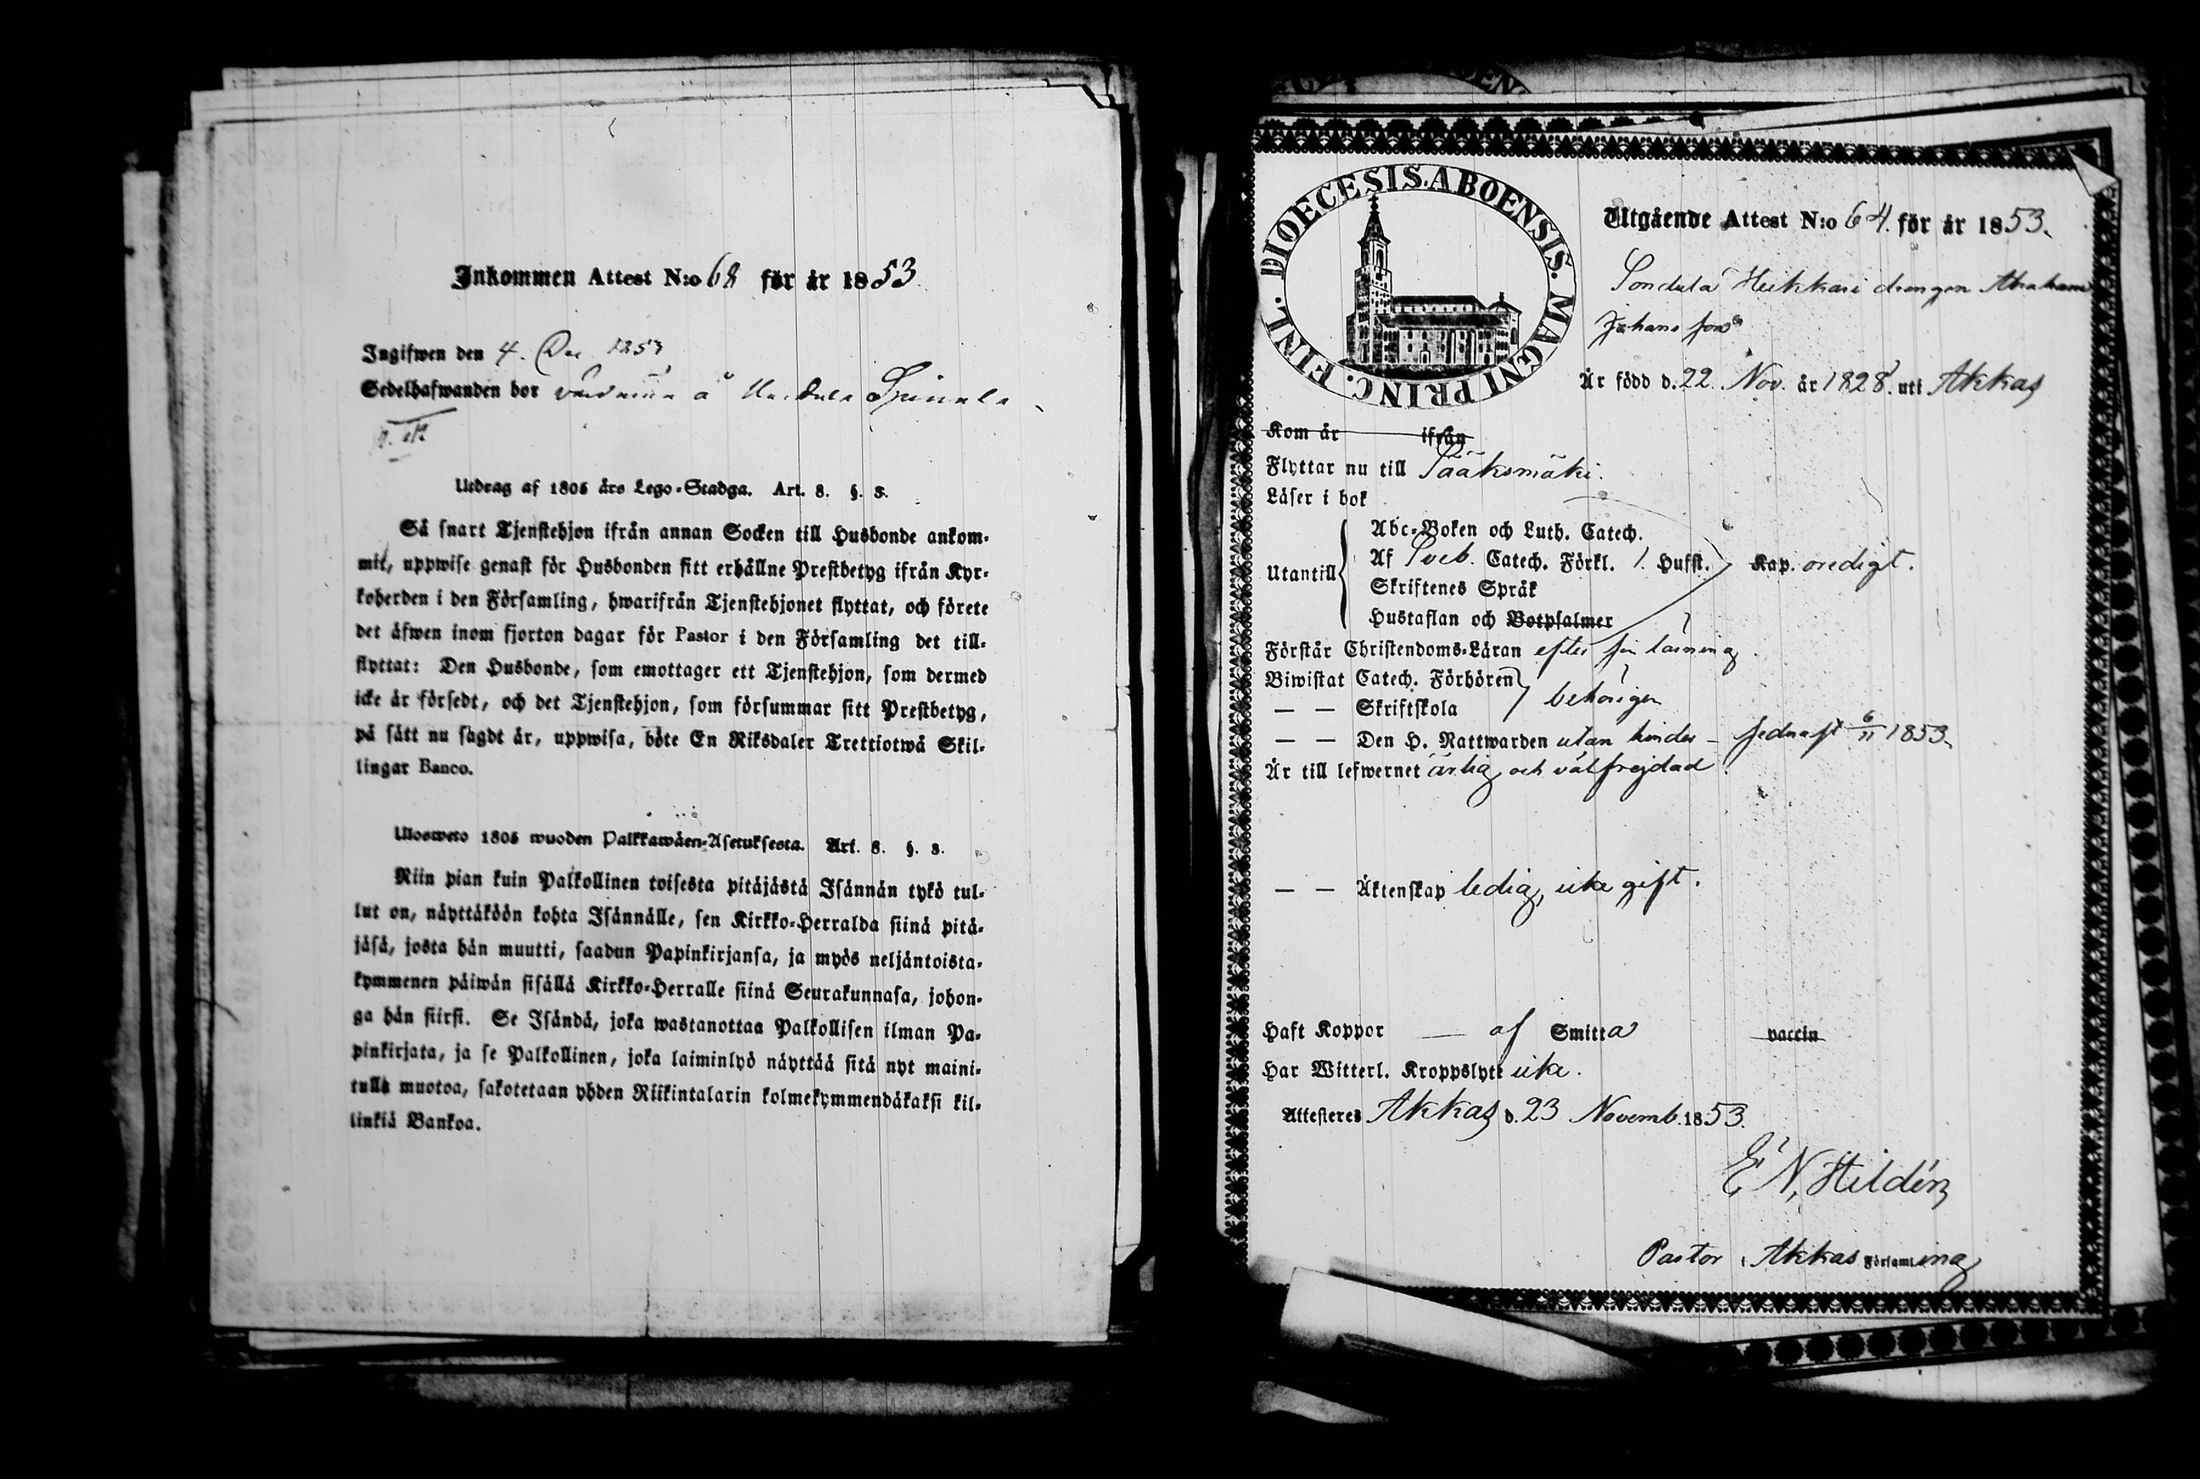 Inkommen Attest N:o 68 för år 1853
Ingifwen den 4. Dec 1853
Sedelhafwanden bor
Utdrag af 1805 års Lego-Stadga. Art. 8. §. 3.
Så snart Tjenstehjon ifrån annan Socken till Husbonde ankom-
mit, uppwise genast för Husbonden sitt erhållne Prestbetyg ifrån Kyr-
koherden i den Församling, hwarifrån Tjenstehjonet flyttat, och förete
det äfwen inom fjorton dagar för Pastor i den Församling det till-
flyttat: Den Husbonde, som emottager ett Tjenstehjon, som dermed
icke är försedt, och det Tjenstehjon, som försummar sitt Prestbetyg,
på sätt nu sagdt är, uppwisa, böte En Riksdaler Trettiotwå Skil-
lingar Banco.
Ulosweto 1805 wuoden Palkkawäen-Asetuksesta. Art. 8. §. 3.
Niin pian kuin Palkollinen toisesta pitäjästä Isännän tykö tul-
lut on, näyttäköön kohta Isännälle, sen Kirkko-Herralda siinä pitä-
jäsä, josta hän muutti, saadun Papinkirjansa, ja myös neljäntoista-
kymmenen päiwän sisällä Kirkko-Herralle siinä Seurakunnasa, johon-
ga hän siirsi. Se Isändä, joka wastanottaa Palkollisen ilman Pa-
pinkirjata, ja se Palkollinen, joka laiminlyö näyttää sitä nyt maini-
tulla muotoa, sakotetaan yhden Riikintalarin kolmekymmendäkaksi kil-
linkiä Bankoa.
DIOECESIS. ABOENSIS. MAGNI PRINC. FINL.
Utgående Attest N:o 64. för år 1853.
Sondula Heikkari drengen Abraham
Johansson
Är född d. 22 Nov. år 1828. uti Akkas
Kom år ifrån
Flyttar nu till Sääksmäki.
Läser i bok
Abc-Boken och Luth. Catech.
Utantill Af Sveb. Catech. Förkl. 1. Hufst. Kap. oredigt.
Skriftenes Språk
Hustaflan och Botpsalmer
Förstår Christendoms-Läran efter sin läsning
Biwistat Catech. Förhören
— — Skriftskola behörigen
— — Den H. Nattwarden utan hinder – sednast 6/11 1853.
Är till lefwernet ärlig och välfrejdad
— — Äktenskap ledig, icke gift.
Haft Koppor — af Smitta vaccin
Har Witterl. Kroppslyte icke.
Attesteres Akkas d. 23 Novemb. 1853.
E. N. Hildén
Pastor i Akkas Församling